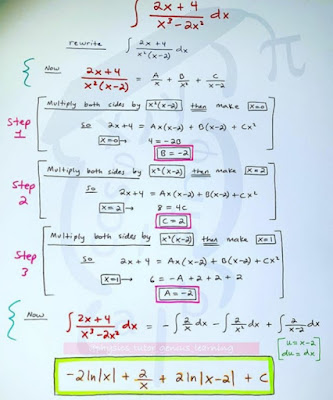 ∫ (2x + 4)/(x³ - 2x²) dx
rewrite ∫ (2x + 4)/(x²(x-2)) dx
Now (2x + 4)/(x²(x-2)) = A/x + B/x² + C/(x-2)
Step 1
Multiply both sides by x²(x-2) then make x=0
So 2x+4 = Ax(x-2) + B(x-2) + Cx²
x=0 → 4 = -2B
B = -2
Step 2
Multiply both sides by x²(x-2) then make x=2
So 2x+4 = Ax(x-2) + B(x-2) + Cx²
x=2 → 8 = 4C
C = 2
Step 3
Multiply both sides by x²(x-2) then make x=1
So 2x+4 = Ax(x-2) + B(x-2) + Cx²
x=1 → 6 = -A + 2 + 2
A = -2
Now ∫ (2x+4)/(x³-2x²) dx = -∫ 2/x dx - ∫ 2/x² dx + ∫ 2/(x-2) dx
u = x-2
du = dx
-2ln|x| + 2/x + 2ln|x-2| + C